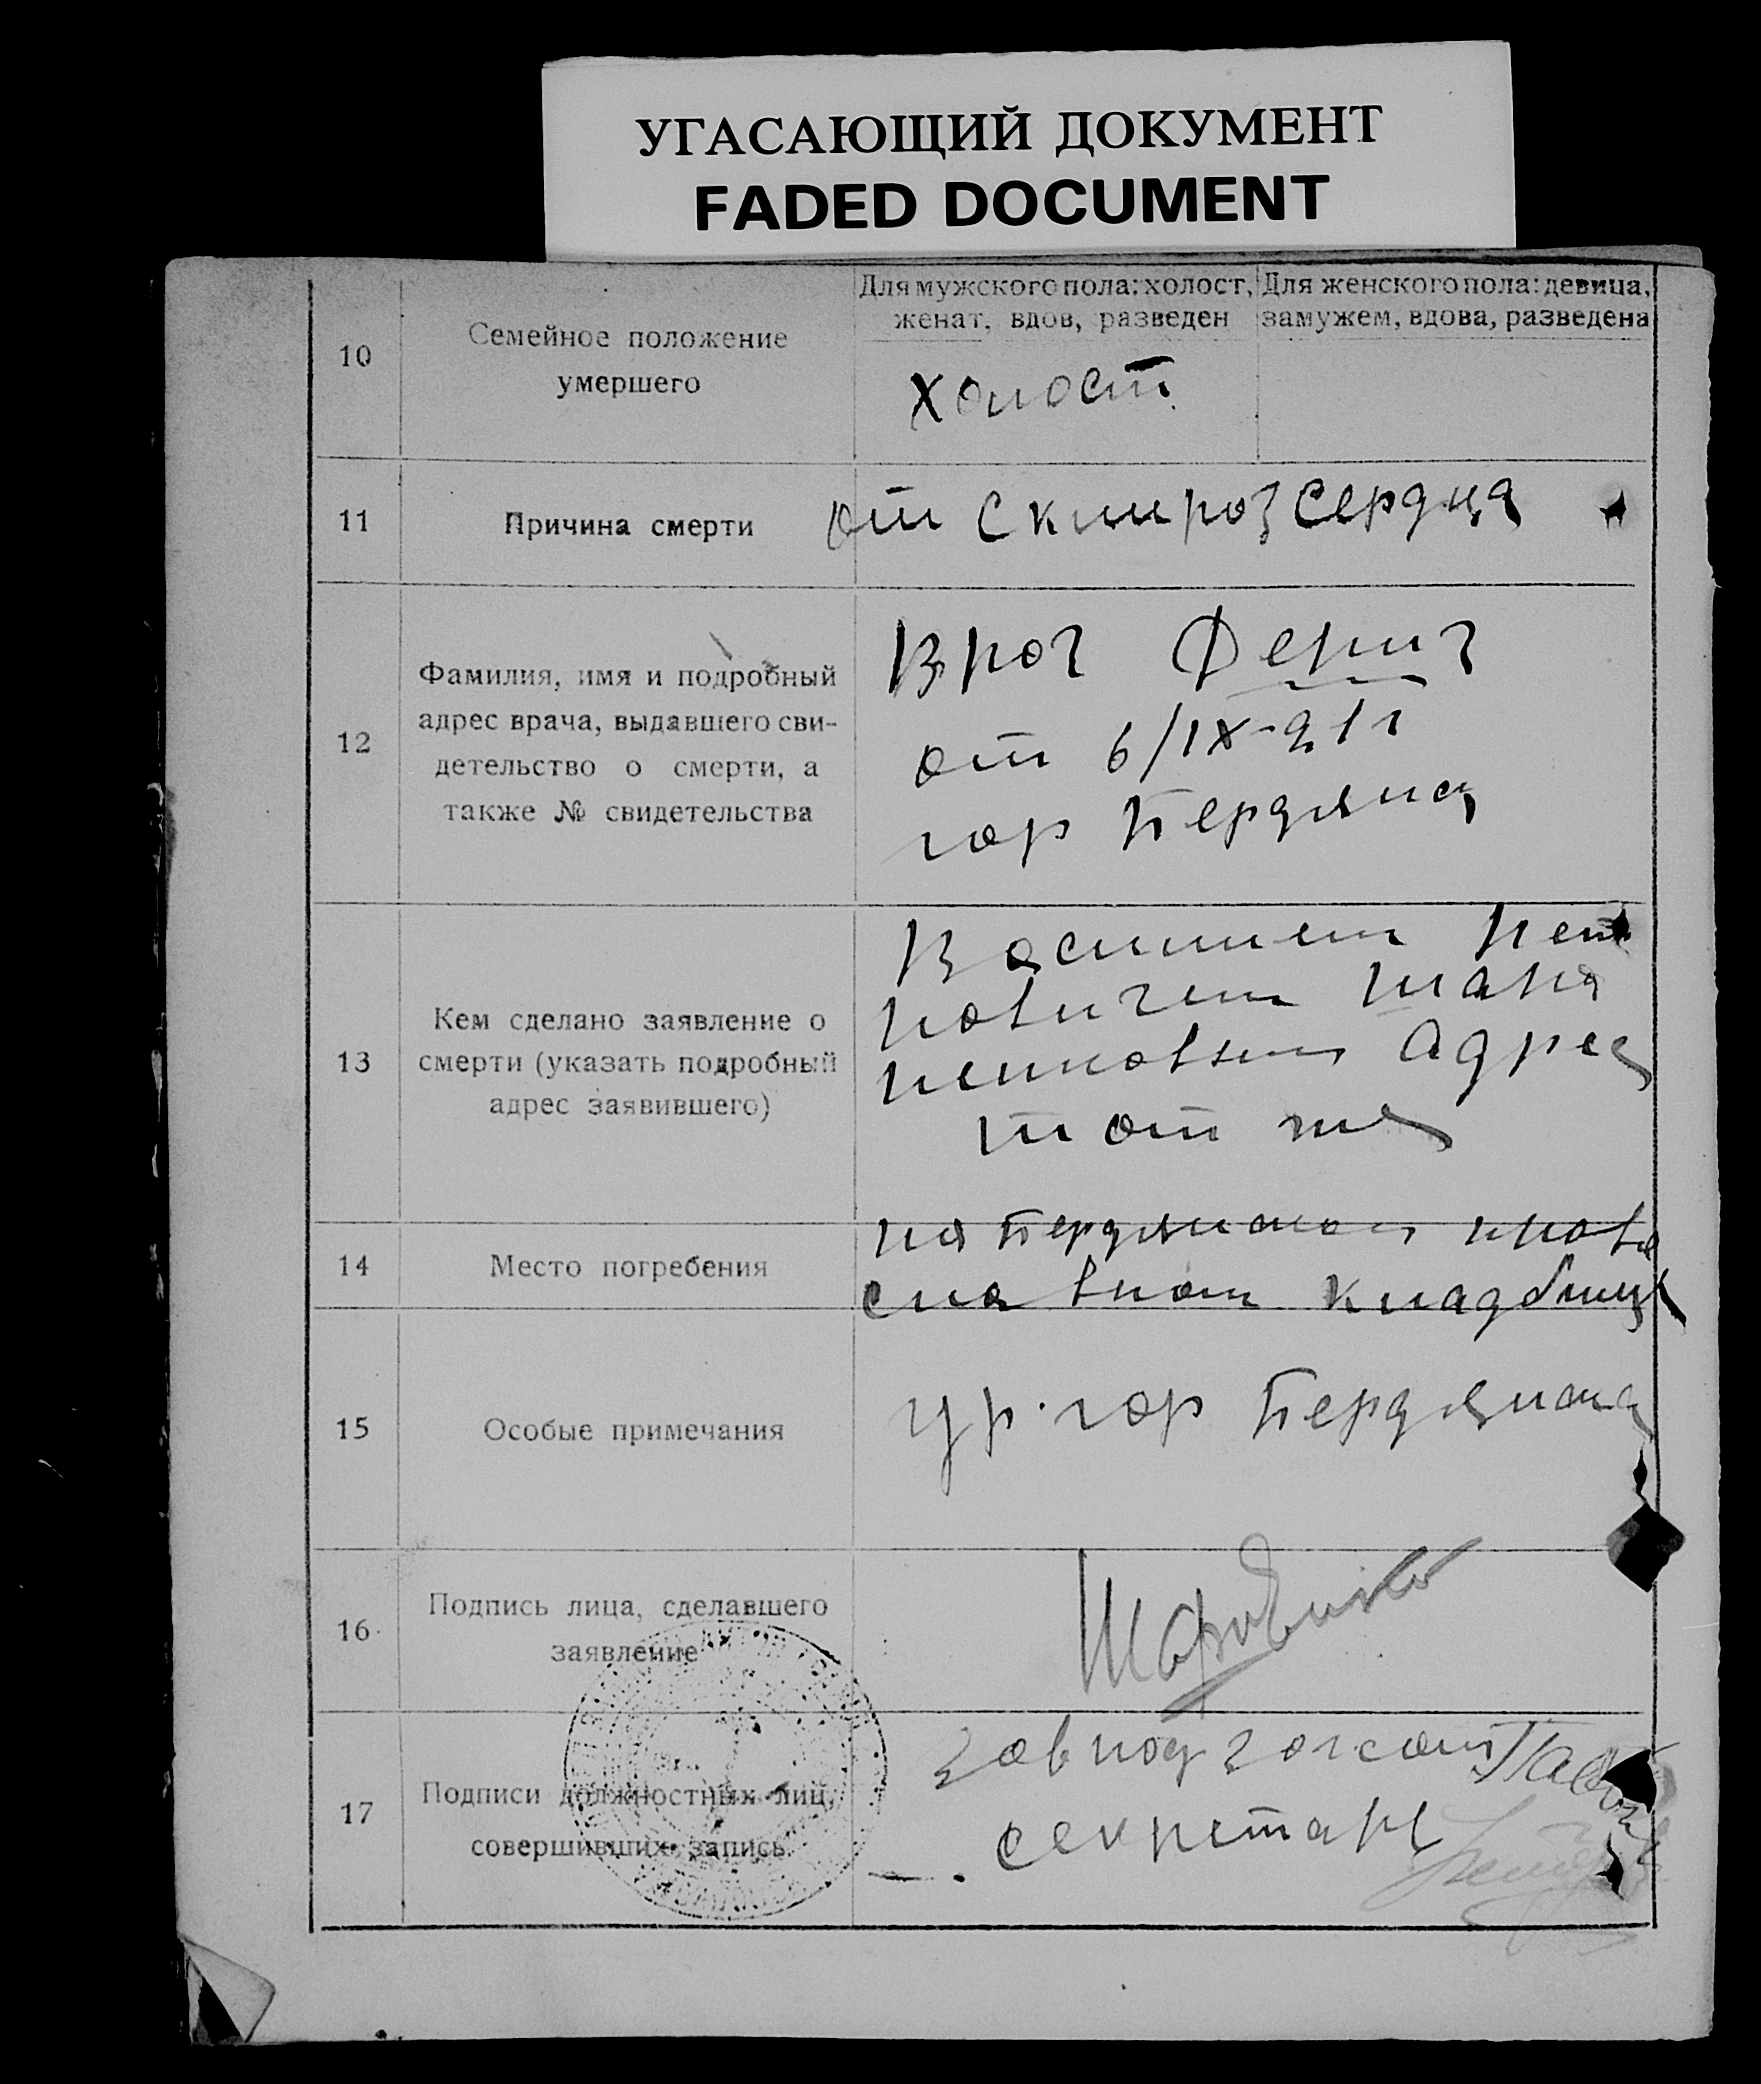 УГАСАЮЩИЙ ДОКУМЕНТ
FADED DOCUMENT
Для мужского пола: холост,
женат, вдов, разведен
Для женского пола: девица,
замужем, вдова, разведена
10
Семейное положение
умершего
холост
11
Причина смерти
от склироз сердца
12
Фамилия, имя и подробный
адрес врача, выдавшего сви-
детельство о смерти, а
также № свидетельства
Врач
от 6/IX-21г
гор Бердянск
13
Кем сделано заявление о
смерти (указать подробный
адрес заявившего)
Василием Пет
ровичем
Адрес
тот же
14
Место погребения
на Бердянском право
славном кладбище
15
Особые примечания
ур. гор Бердянска
16
Подпись лица, сделавшего
заявление
17
Подписи должностных лиц,
совершивших запись.
Завподзагсом
секретарь